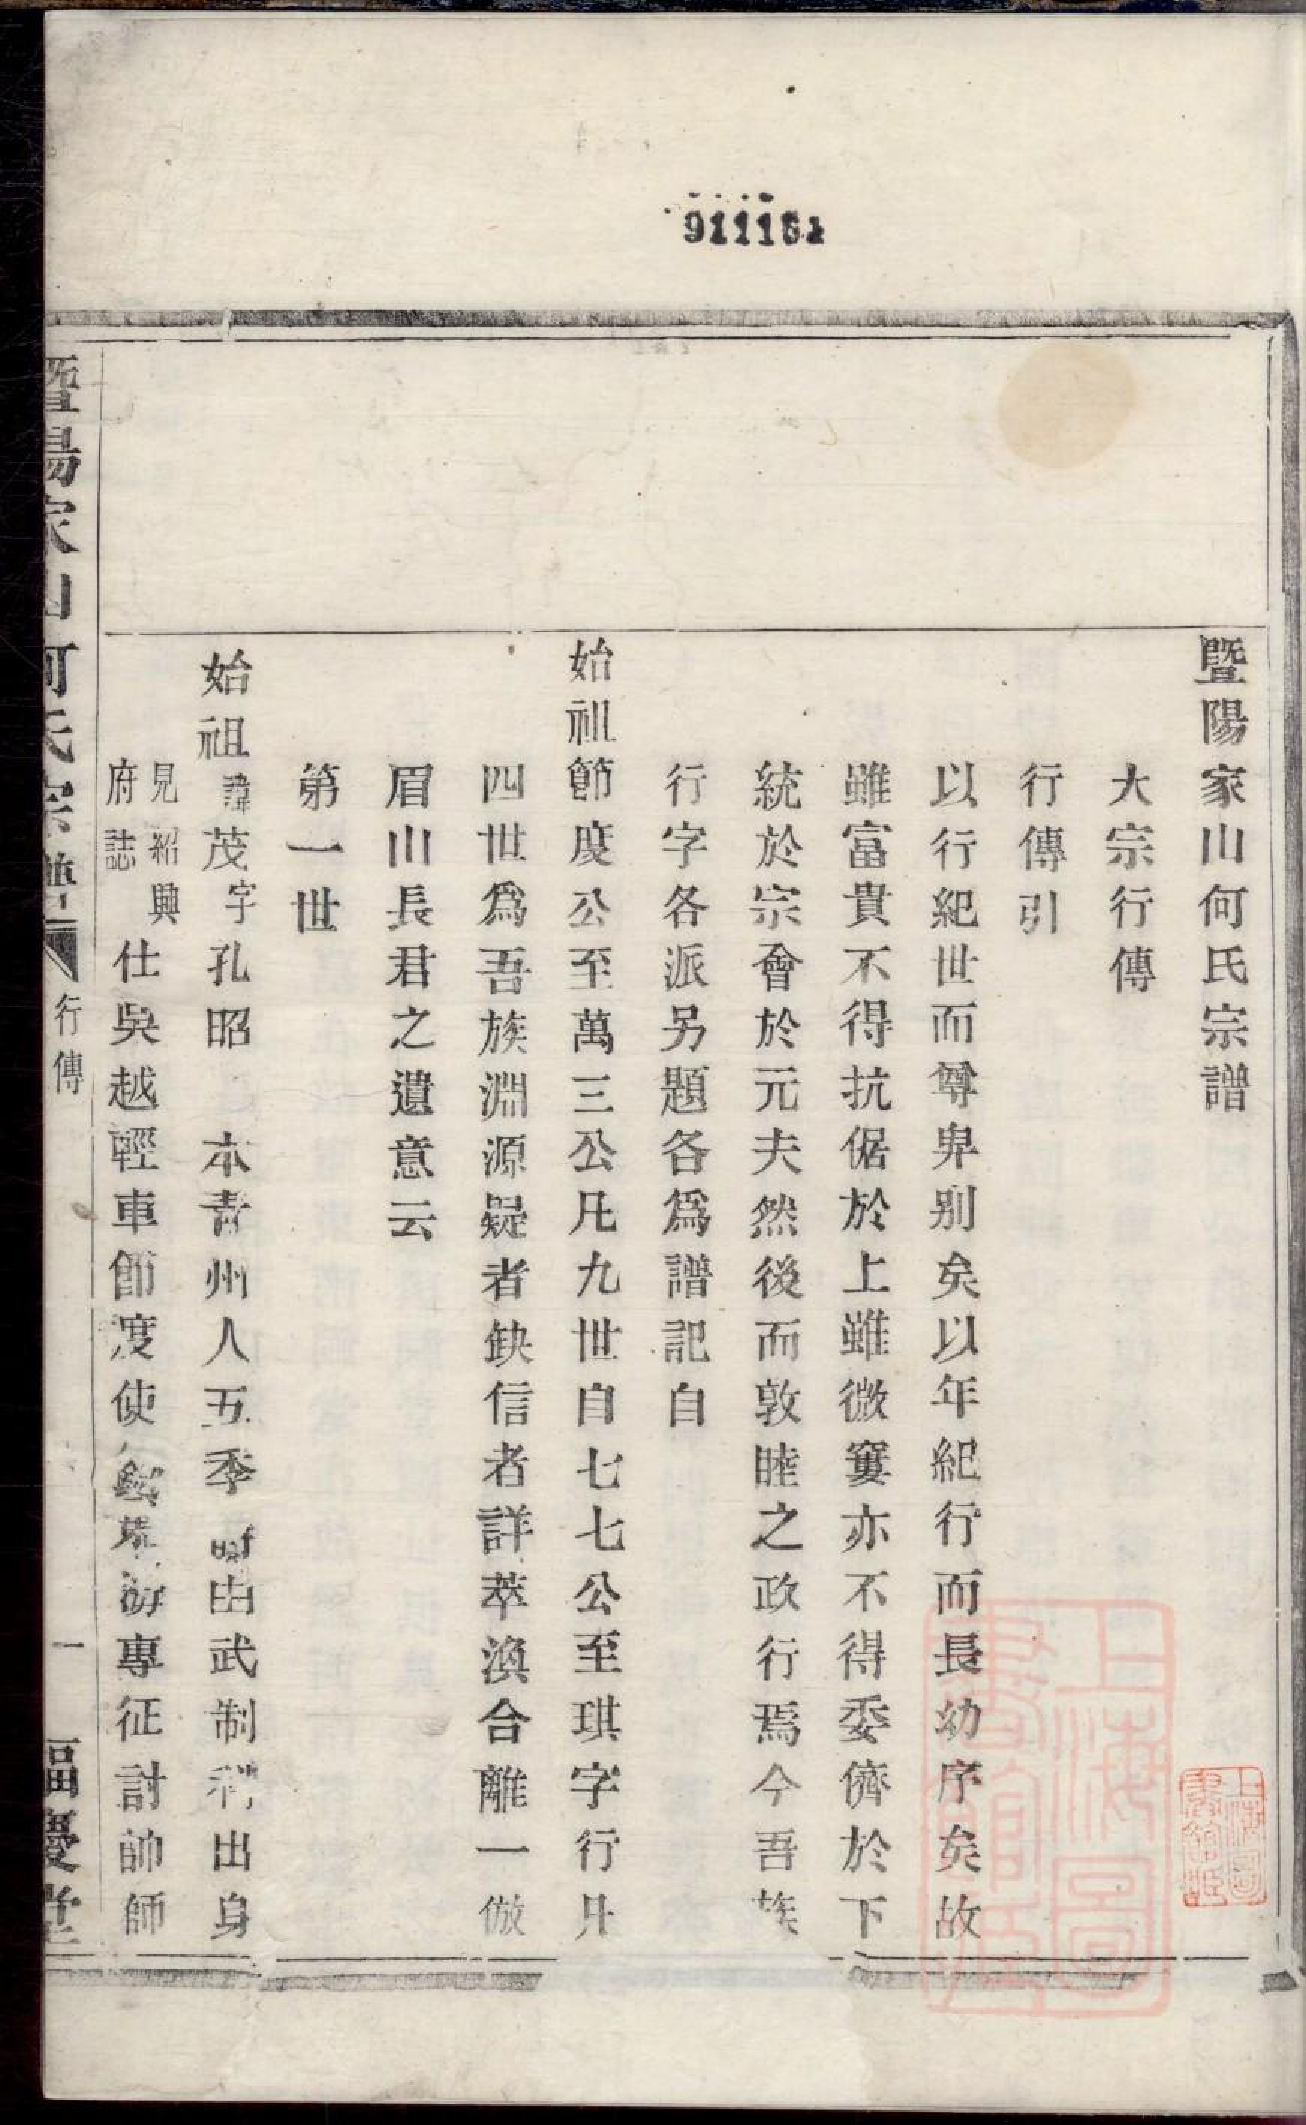 911161
暨陽家山何氏宗譜
大宗行傳
行傳引
以行紀世而尊卑别矣以年紀行而長幼序矣故
雖富貴不得抗倨於上雖微窶亦不得委儕於下
統於宗會於元夫然後而敦睦之政行焉今吾族
行字各派另題各爲譜記自
始祖節度公至萬三公凡九世自七七公至琪字行凡
四世爲吾族淵源疑者缺信者詳萃渙合離一倣
眉山長君之遺意云
第一世
始祖諱茂字孔昭 本青州人五季時由武制科出身
見紹興
府誌
仕吳越輕車節度使專征討帥師
暨陽家山何氏宗譜
行傳
一
福慶堂
上海圖書館藏
上海圖書館藏